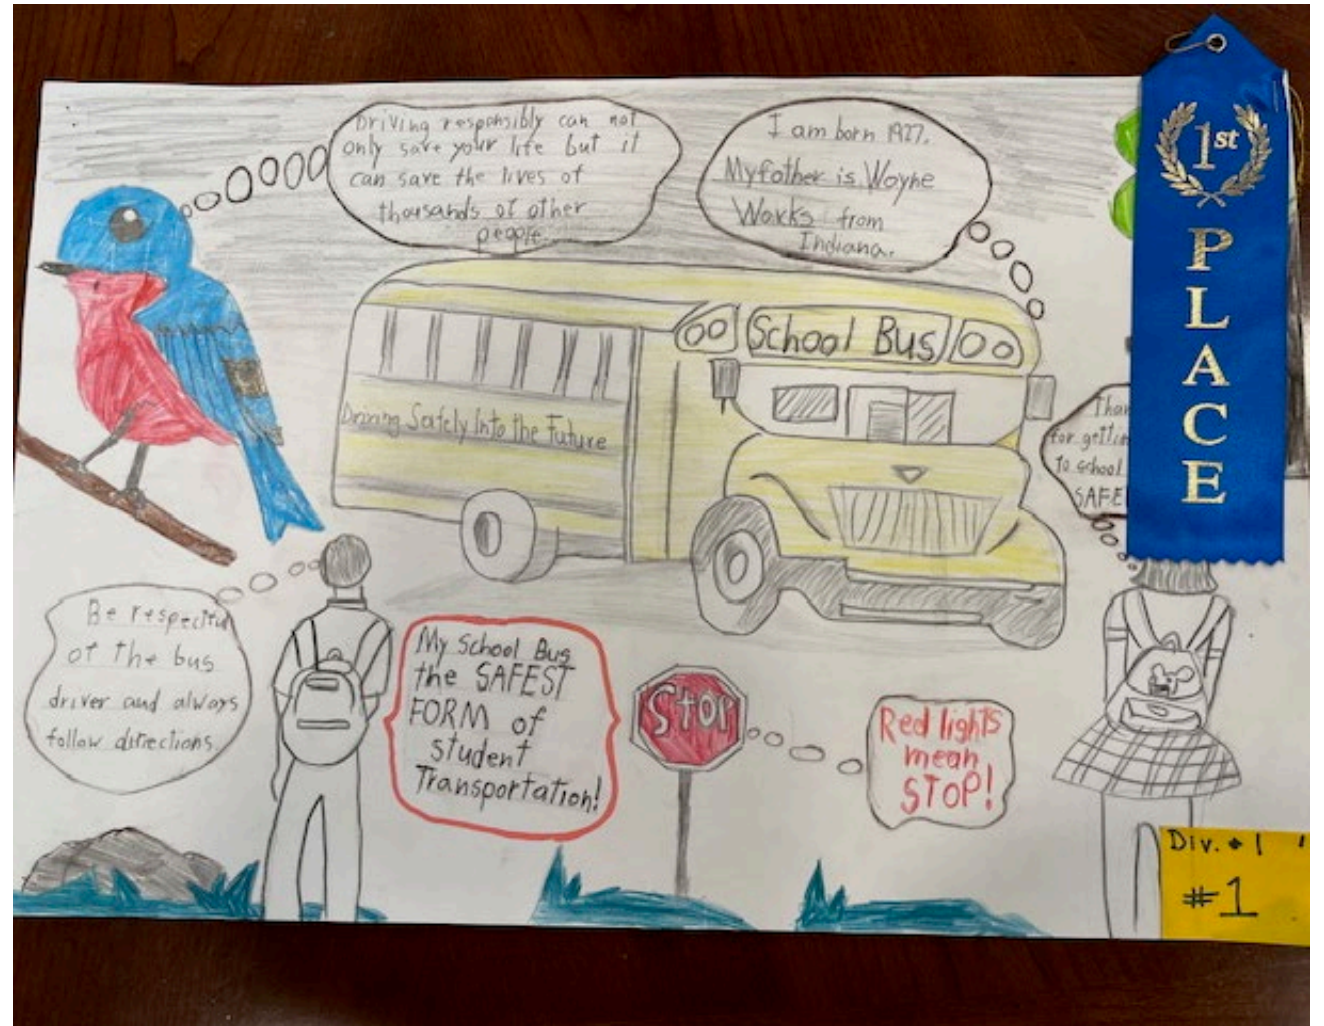 Driving responsibly can not
only save your life but it
can save the lives of
thousands of other
people.
I am born 1927.
My father is Wayne
Works from
Indiana.
1st
PLACE
School Bus
Driving Safely Into the Future
for
to school
SAFE
Be respectful
of the bus
driver and always
follow directions.
My School Bus
the SAFEST
FORM of
student
Transportation!
STOP
Red lights
mean
STOP!
Div. # 1
#1